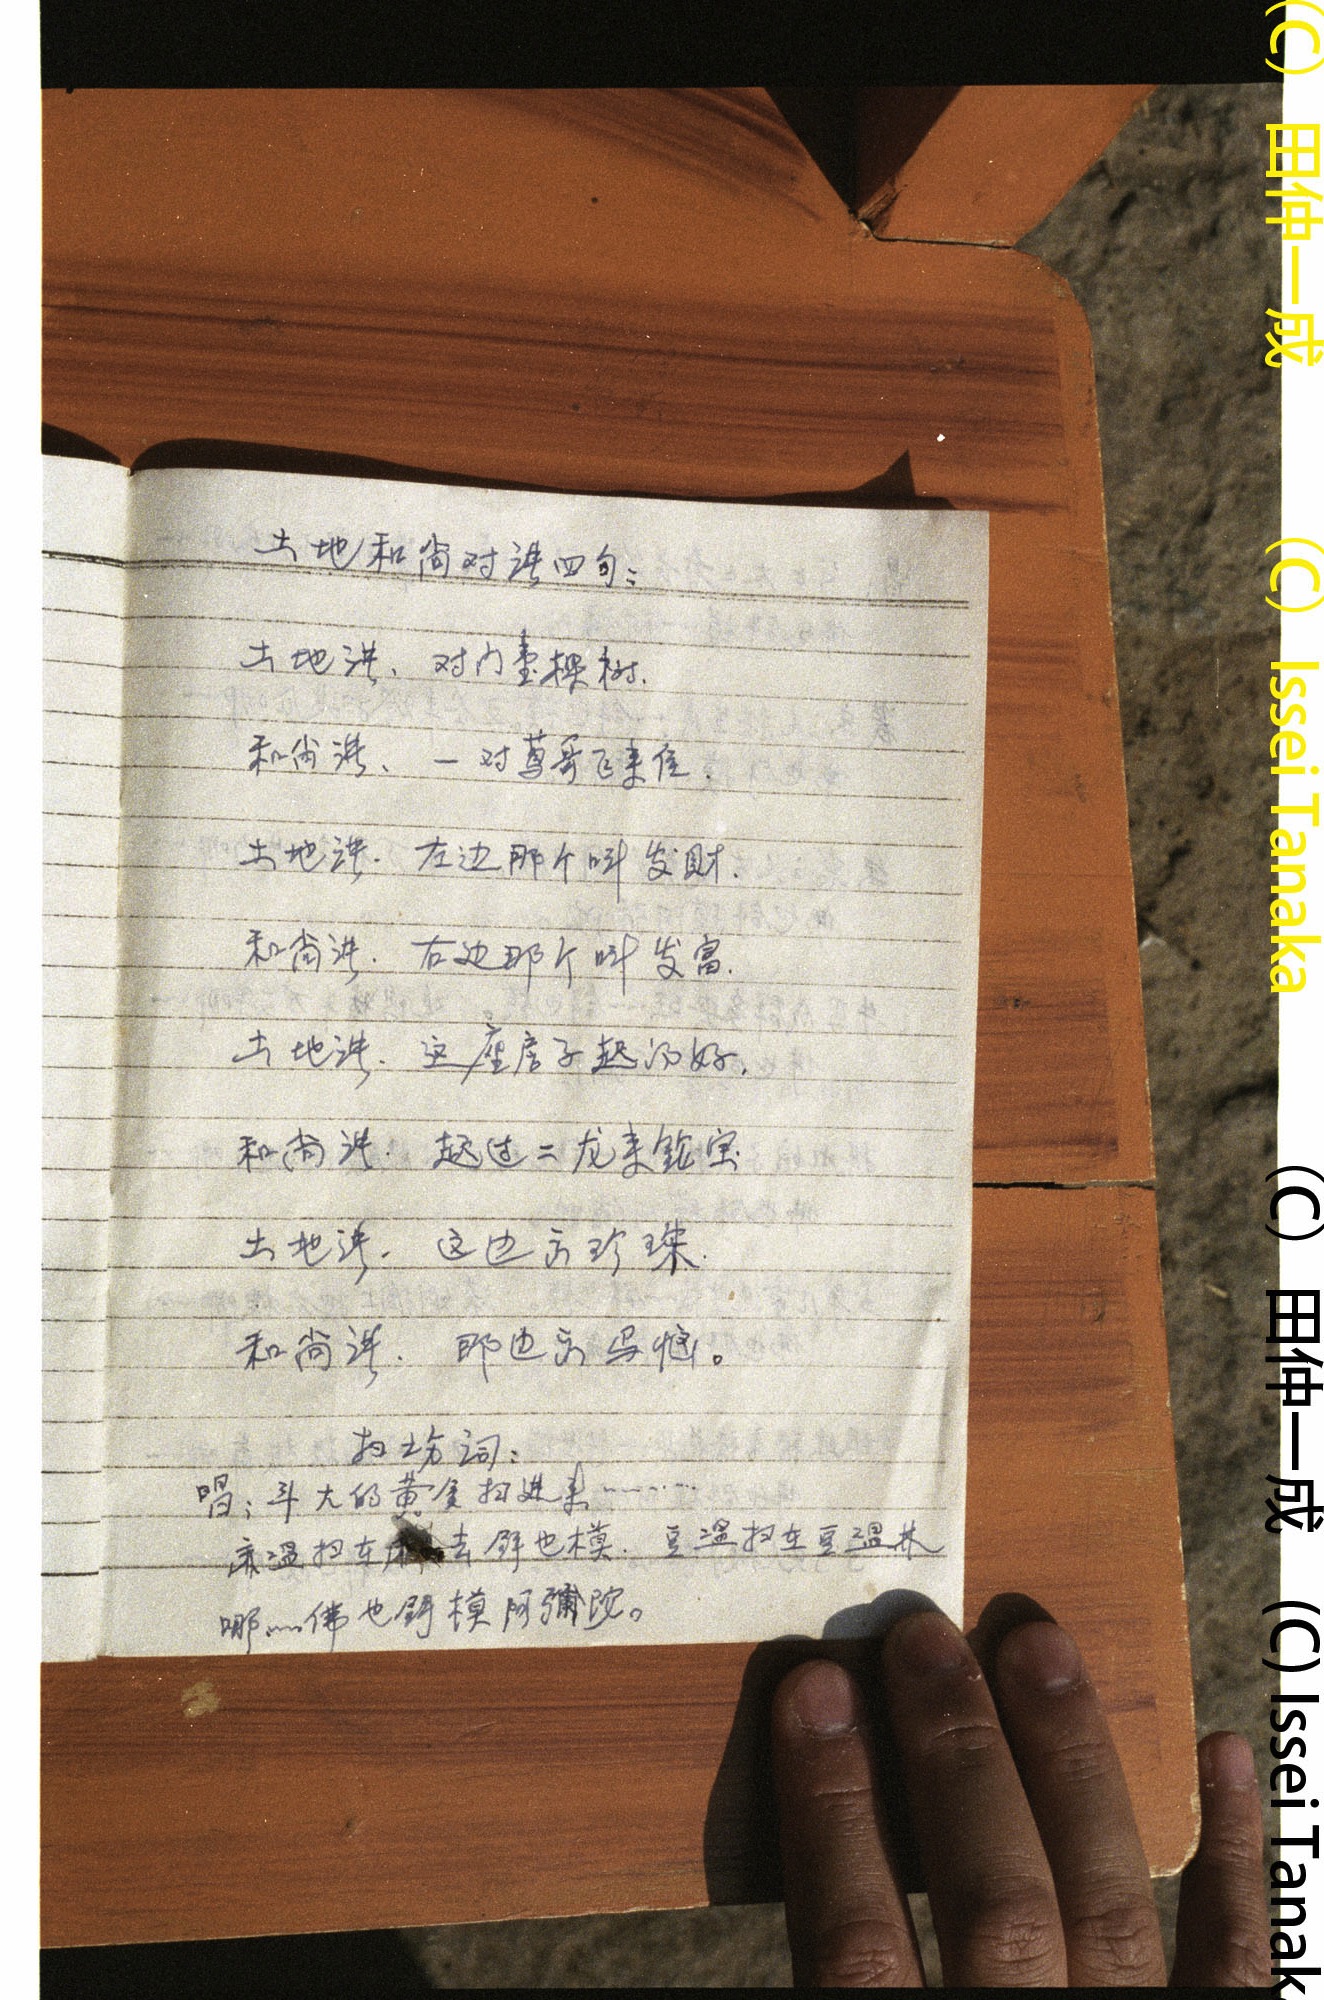 土地和尚对讲四句：
土地讲、对门一棵树.
和尚讲、一对莺哥飞来住.
土地讲. 左边那个叫发财.
和尚讲. 右边那个叫发富.
土地讲. 这座房子起的好.
和尚讲. 起过二龙来抢宝
土地讲. 这边出珍珠.
和尚讲. 那边出玛恼。
扫坊词：
唱：斗大的黄金扫进来………
扫去 也模. 豆温扫在豆温
哪……佛也 模阿彌陀。
(C) 田仲一成 (C) Issei Tanaka
(C) 田仲一成 (C) Issei Tanak